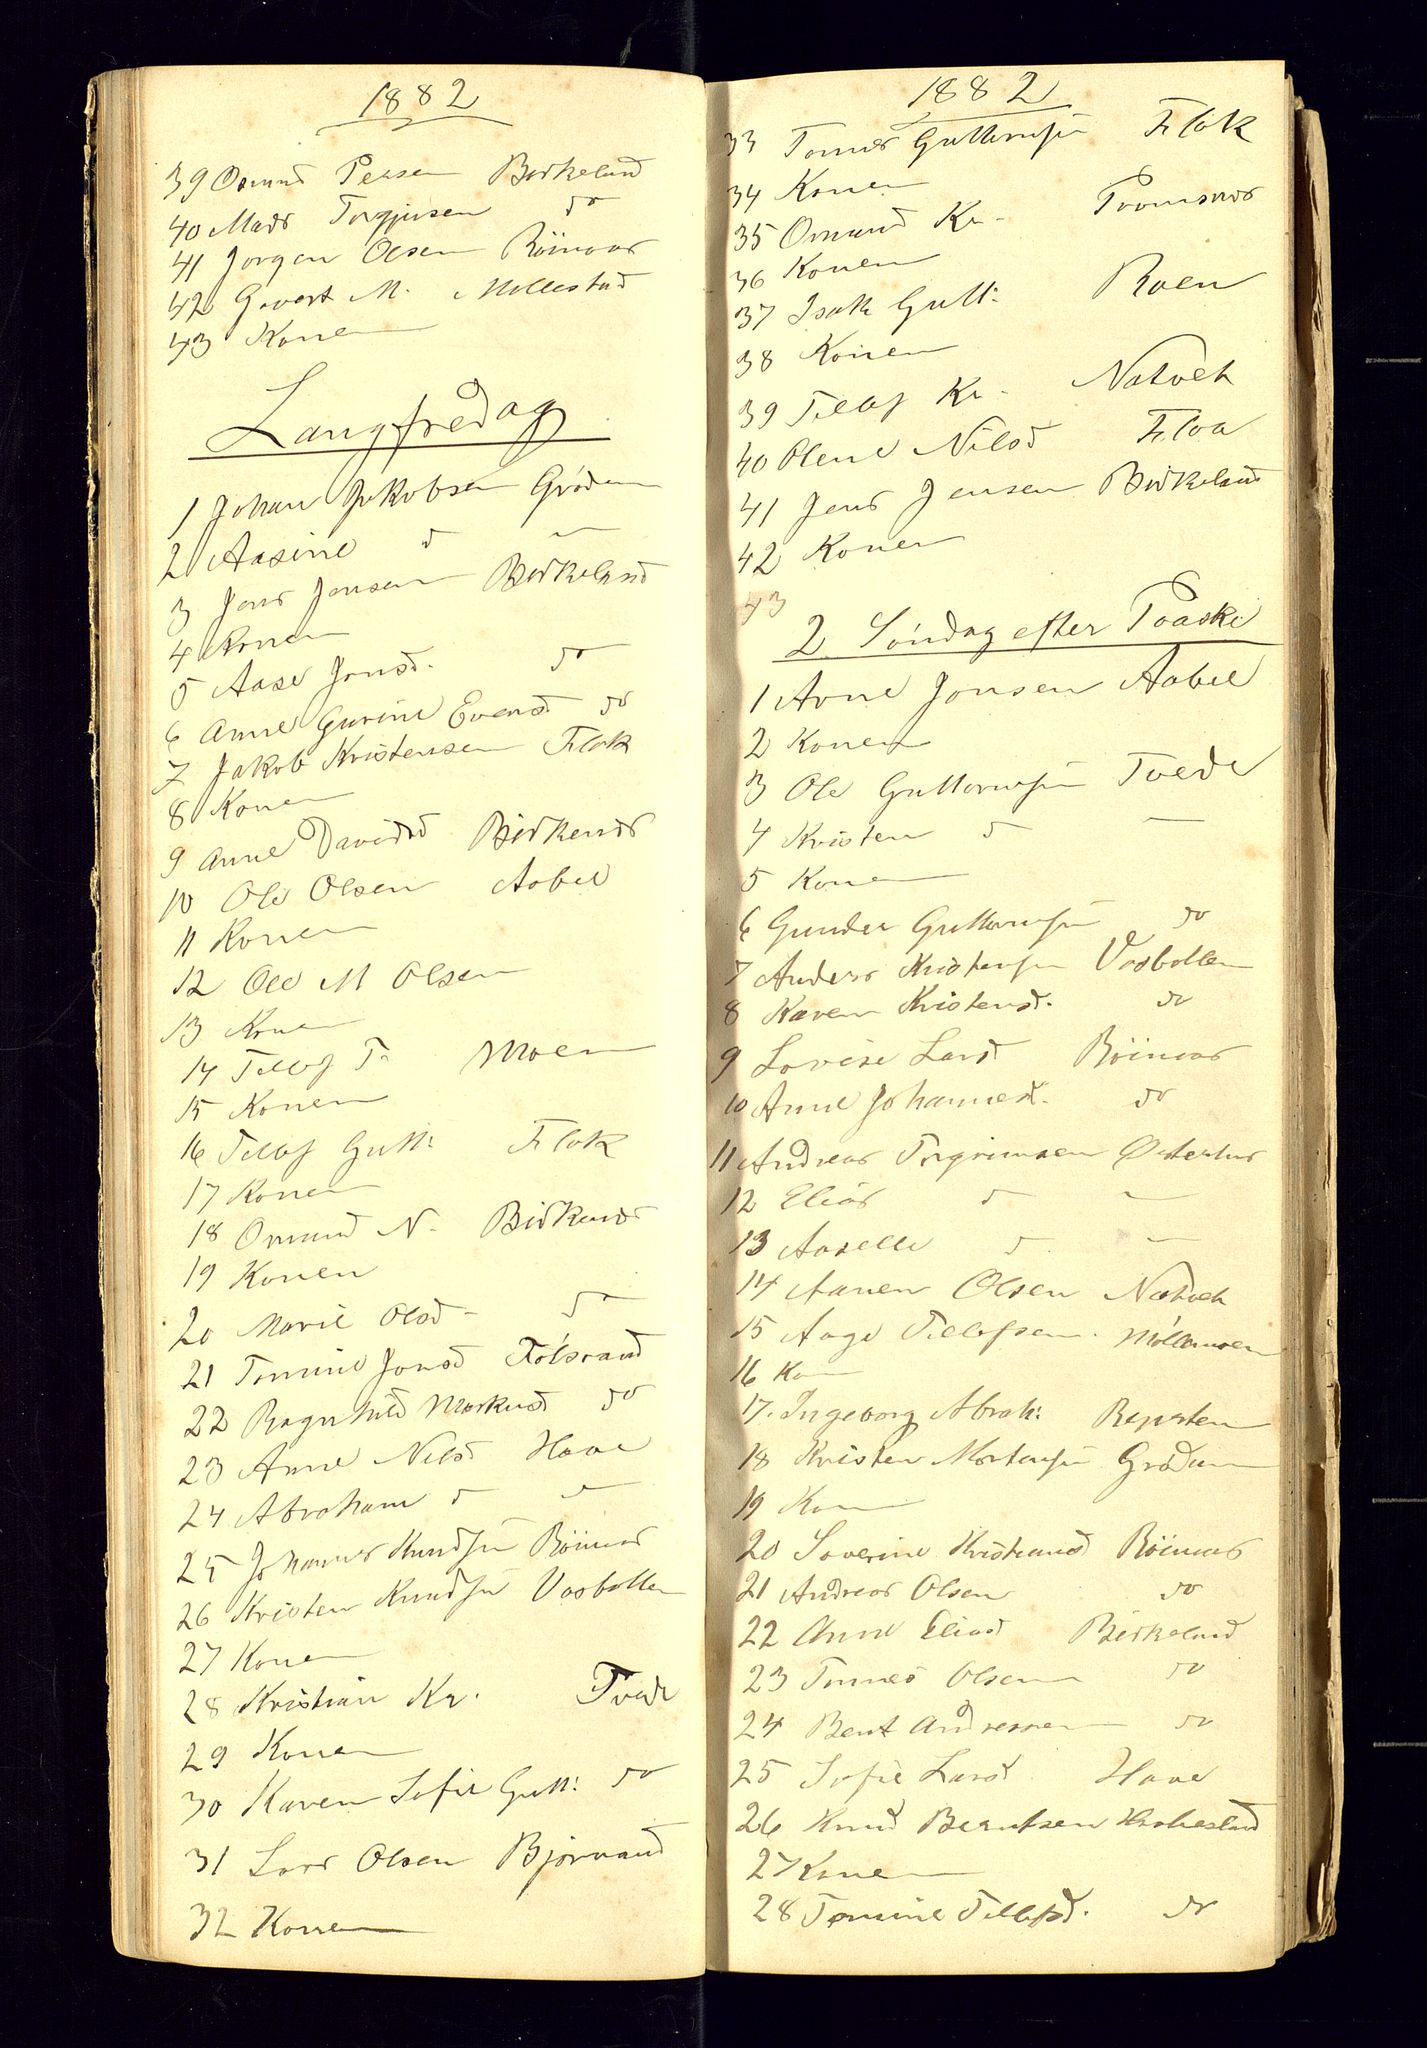 1882
39 Osmund Pedersen Birkeland
40 Mads Torgjusen do
41 Jørgen Olsen Röinaas
42 Govert M. Mollestad
43 Konen
Langfredag
1 Johan Jakobsen Grødum
2 Aasine d —
3 Jens Jensen Birkeland
4 Konen
5 Aase Jensd. do
6 Anne Gurine Evensd do
7 Jakob Kristensen Flak
8 Konen
9 Anne Davidsd Birkenes
10 Ole Olsen Aabel
11 Konen
12 Ole M Olsen
13 Konen
14 Tellef T. Moen
15 Konen
16 Tellef Gutt: Flak
17 Konen
18 Osmund N. Birkenes
19 Konen
20 Marie Olsd. do
21 Tomine Jensd
22 Ragnhild Markusd do
23 Anne Nilsd Haae
24 Abraham d —
25 Johannes Knudsen Röinaas
26 Kristen Knudsen Vasbotten
27 Konen
28 Kristian Kr. Tvede
29 Konen
30 Karen Sofie Gutt: do
31 Lars Olsen Bjorvand
32 Konen
1882
33 Tomas Guttormsen Flak
34 Konen
35 Osmund Kr.
36 Konen
37 Isak Gutt: Roen
38 Konen
39 Tellef Kr. Natvek
40 Olene Nilsd Floa
41 Jens Jensen Birkeland
42 Konen
43
2 Søndag efter Paaske
1 Arne Jensen Aabel
2 Konen
3 Ole Guttormsen Tvede
4 Kristen d —
5 Konen
6 Gunder Guttormsen do
7 Anders Kristensen Vasbotten
8 Karen Kristensd. do
9 Lovise Larsd Röinaas
10 Anne Johannesd. do
11 Andreas Torgrimsen Østerhus
12 Elias d —
13 Aaselle d —
14 Aanen Olsen Natvek
15 Aage Tellefsen. Möllemoen
16 Kon
17. Ingeborg Abrah: Repsten
18 Kristen Mortensen Grødum
19 Kon
20 Severine Kristiansd Röinaas
21 Andreas Olsen do
22 Anne Eliasd Birkeland
23 Tomas Olsen do
24 Bent Andresen do
25 Sofie Larsd Haae
26 Knud Berntsen
27 Konen
28 Tomine Tellefsd. do